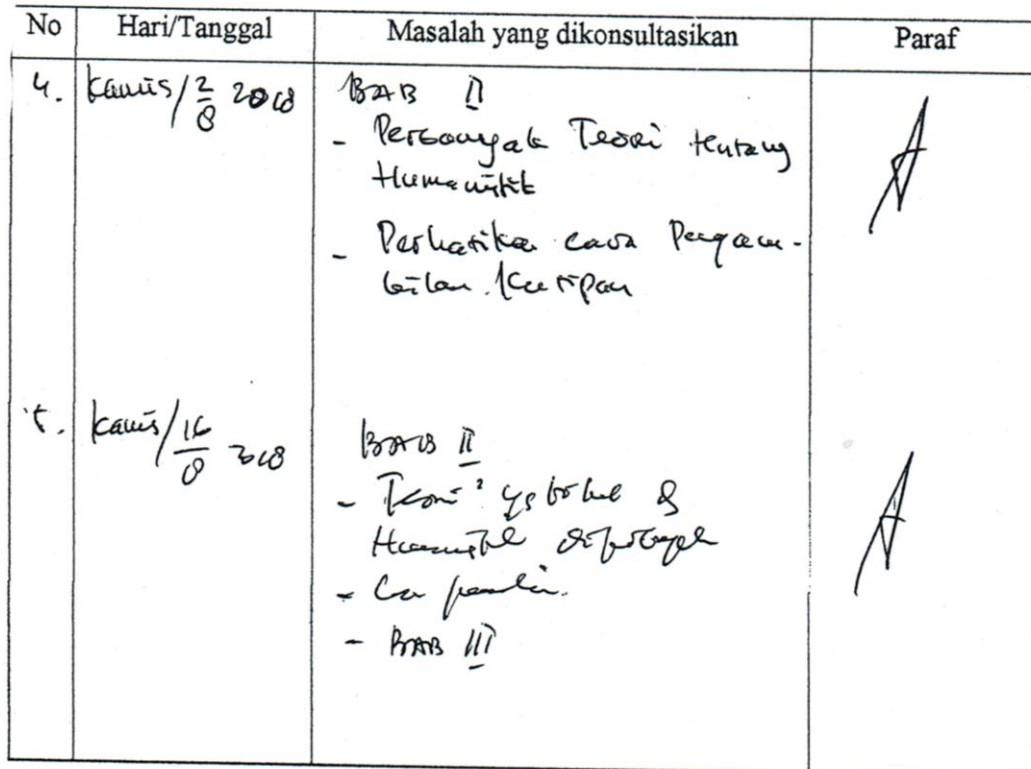 No Hari/Tanggal Masalah yang dikonsultasikan Paraf
4. Kamis/2/8 2018 BAB II
- Perbanyak Teori tentang
Humanistik
- Perhatikan cara Pengam-
bilan Kutipan
5. Kamis/16/8 2018 BAB II
- Teori²
Humanistik diperbanyak
- BAB III